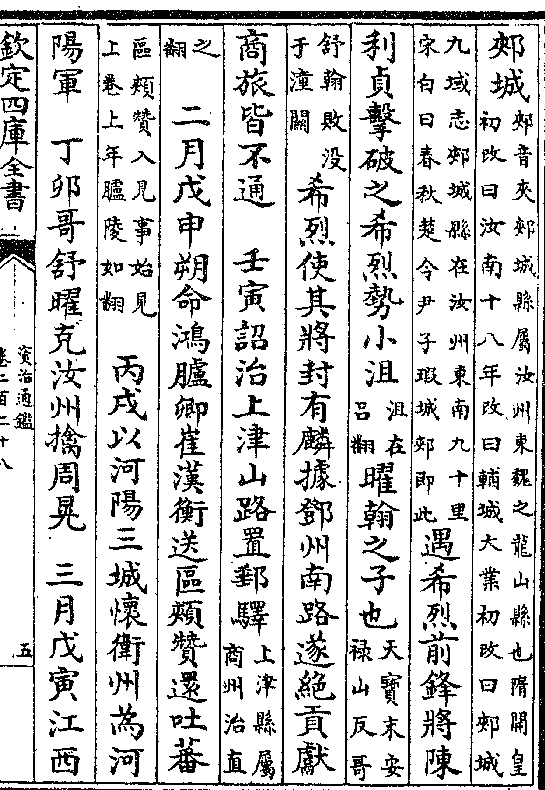 郟城郟音夾郟城縣屬汝州東魏之龍山縣也隋開皇
初改曰汝南十八年改曰輔城大業初改曰郟城
九域志郟城縣在汝州東南九十里
宋白曰春秋楚令尹子瑕城郟即此遇希烈前鋒將陳
利貞擊破之希烈勢小沮沮在
吕翻曜翰之子也天寶末安
禄山反哥
舒翰敗没
于潼關希烈使其將封有麟據鄧州南路遂絶貢獻
商旅皆不通　壬寅詔治上津山路置郵驛上津縣屬
商州治直
之
翻　二月戊申朔命鴻臚卿崔漢衡送區頰贊還吐蕃
區頰贊入見事始見
上卷上年臚陵如翻　丙戌以河陽三城懷衛州為河
陽軍　丁卯哥舒曜克汝州擒周晃　三月戊寅江西
欽定四庫全書
資治通鑑
卷二百二十八
五